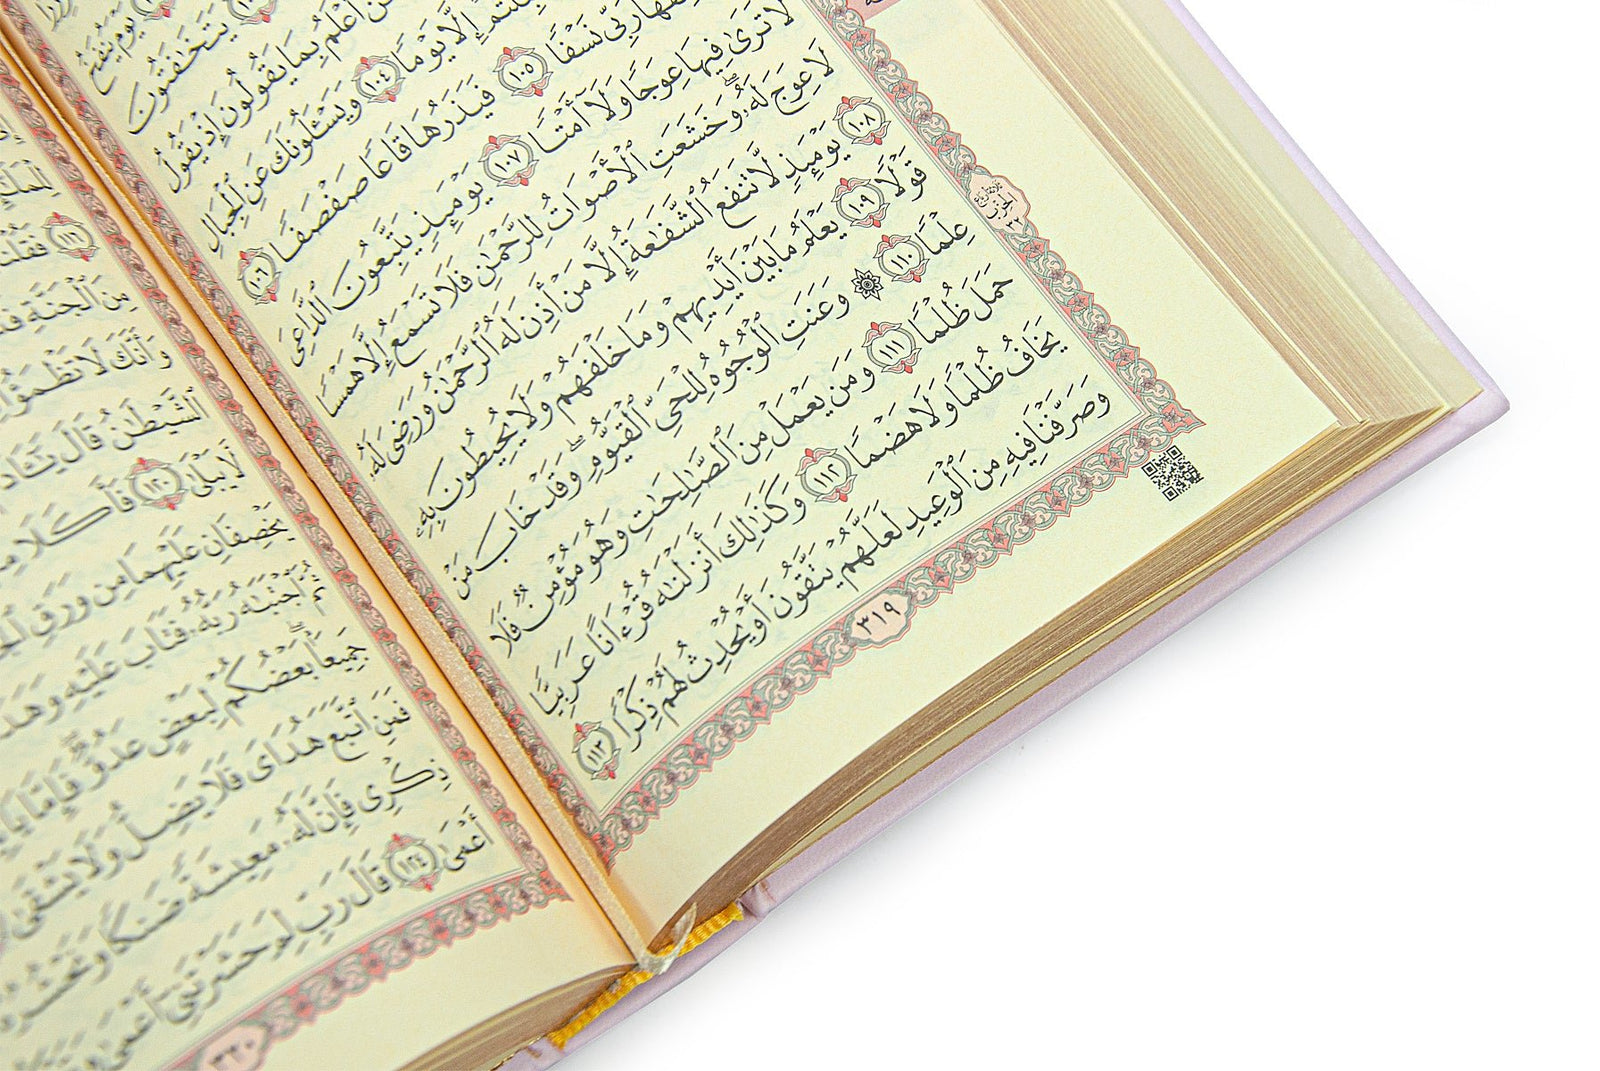 يَوْمَ يُنفَخُ
يَتَخَٰفَتُونَ
أَعْلَمُ بِمَا يَقُولُونَ إِذْ يَقُولُ
إِلَّا يَوْمًا ١٠٤ وَيَسْـَٔلُونَكَ عَنِ ٱلْجِبَالِ
رَبِّي نَسْفًا ١٠٥ فَيَذَرُهَا قَاعًا صَفْصَفًا ١٠٦
لَّا تَرَىٰ فِيهَا عِوَجًا وَلَآ أَمْتًا ١٠٧ يَوْمَئِذٍ يَتَّبِعُونَ ٱلدَّاعِيَ
لَا عِوَجَ لَهُۥ ۖ وَخَشَعَتِ ٱلْأَصْوَاتُ لِلرَّحْمَٰنِ فَلَا تَسْمَعُ إِلَّا هَمْسًا
١٠٨ يَوْمَئِذٍ لَّا تَنفَعُ ٱلشَّفَٰعَةُ إِلَّا مَنْ أَذِنَ لَهُ ٱلرَّحْمَٰنُ وَرَضِيَ لَهُۥ
قَوْلًا ١٠٩ يَعْلَمُ مَا بَيْنَ أَيْدِيهِمْ وَمَا خَلْفَهُمْ وَلَا يُحِيطُونَ بِهِۦ
عِلْمًا ١١٠ ۞ وَعَنَتِ ٱلْوُجُوهُ لِلْحَيِّ ٱلْقَيُّومِ ۖ وَقَدْ خَابَ مَنْ
حَمَلَ ظُلْمًا ١١١ وَمَن يَعْمَلْ مِنَ ٱلصَّٰلِحَٰتِ وَهُوَ مُؤْمِنٌ فَلَا
يَخَافُ ظُلْمًا وَلَا هَضْمًا ١١٢ وَكَذَٰلِكَ أَنزَلْنَٰهُ قُرْءَانًا عَرَبِيًّا
وَصَرَّفْنَا فِيهِ مِنَ ٱلْوَعِيدِ لَعَلَّهُمْ يَتَّقُونَ أَوْ يُحْدِثُ لَهُمْ ذِكْرًا ١١٣
الحزب
٣٢
٣١٩
١١٦ فَقُلْنَا
مِنَ ٱلْجَنَّةِ
وَأَنَّكَ لَا تَظْمَؤُا۟
ٱلشَّيْطَٰنُ قَالَ
لَّا يَبْلَىٰ ١٢٠ فَأَكَلَا
يَخْصِفَانِ عَلَيْهِمَا مِن وَرَقِ
ثُمَّ ٱجْتَبَٰهُ رَبُّهُۥ فَتَابَ عَلَيْهِ وَهَدَىٰ
جَمِيعًۢا ۖ بَعْضُكُمْ لِبَعْضٍ عَدُوٌّ ۖ فَإِمَّا
فَمَنِ ٱتَّبَعَ هُدَايَ فَلَا يَضِلُّ وَلَا يَشْقَىٰ
ذِكْرِي فَإِنَّ لَهُۥ مَعِيشَةً ضَنكًا وَنَحْشُرُهُۥ
أَعْمَىٰ ١٢٤ قَالَ رَبِّ لِمَ حَشَرْتَنِيٓ أَعْمَىٰ
٣٢٠